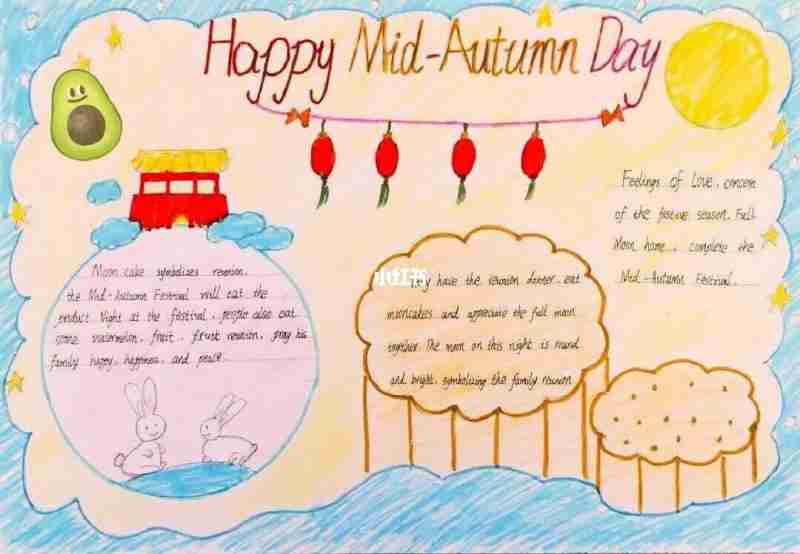 Happy Mid-Autumn Day
Feelings of Love, concern
of the festive season, Full
Moon home, complete the
Mid-Autumn Festival.
Moon cake symbolizes reunion.
the Mid-Autumn Festival will eat the
product Night at the festival, people also eat
some watermelon, fruit, fruit reunion, pray his
family happy, happiness, and peace.
小红书
They have the reunion dinner, eat
mooncakes and appreciate the full moon
together. The moon on this night is round
and bright, symbolizing the family reunion